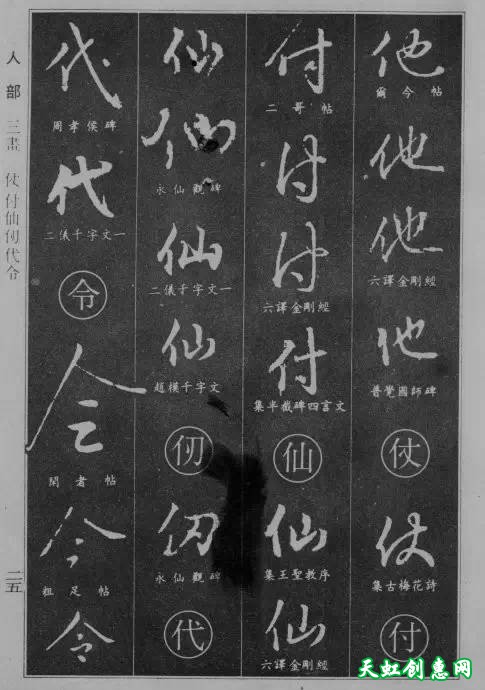 他
爾今帖
他
他
六譯金剛經
他
普覺國師碑
仗
仗
集古梅花詩
付
付
二哥帖
付
付
六譯金剛經
付
集半截碑四言文
仙
仙
集王聖教序
仙
六譯金剛經
仙
仙
永仙觀碑
仙
二儀千字文一
仙
趙模千字文
仞
仞
永仙觀碑
代
代
周孝侯碑
代
二儀千字文一
令
令
闊者帖
令
粗足帖
令
人部 三畫 仗付仙仞代令
二五
天虹创意网